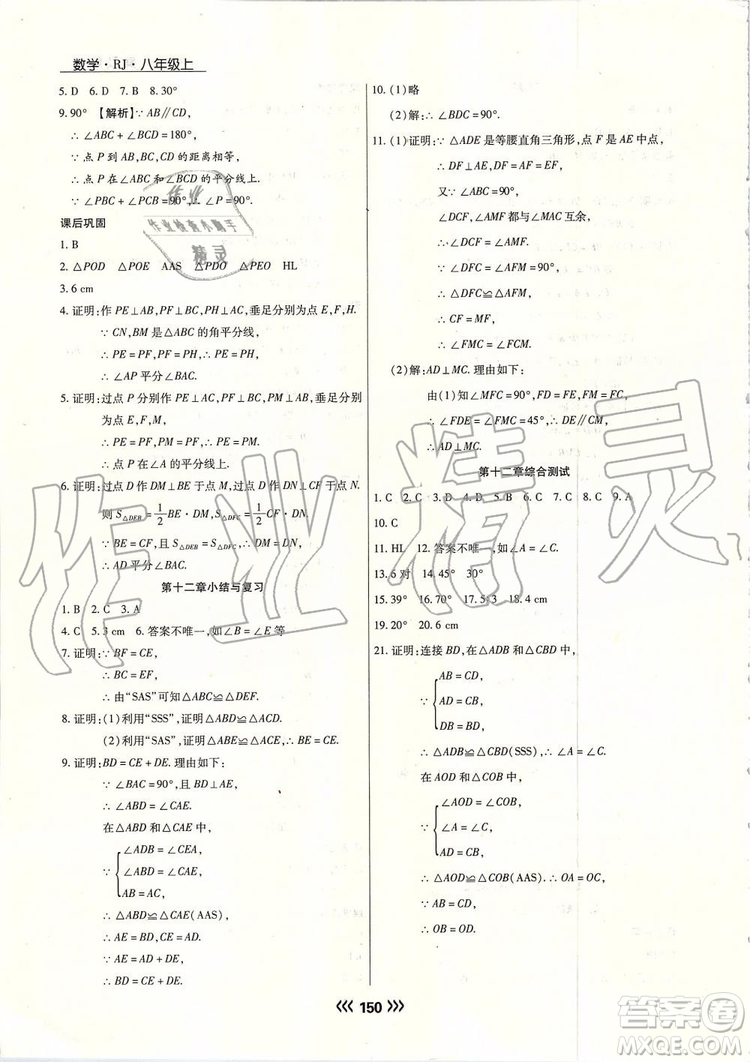 数学·RJ·八年级上
5. D  6. D  7. B  8. 30°
9. 90° 【解析】∵ AB∥CD,
∴ ∠ABC + ∠BCD = 180°,
∵ 点 P 到 AB、BC、CD 的距离相等,
∴ 点 P 在 ∠ABC 和 ∠BCD 的平分线上.
∴ ∠PBC + ∠PCB = 90°, ∴ ∠BPC = 90°.
课后巩固
1. B
2. △POD  △POE  AAS  △PDO  △PEO  HL
3. 6 cm
4. 证明: 作 PE⊥AB, PF⊥BC, PH⊥AC, 垂足分别为点 E, F, H.
∵ CN, BM 是△ABC 的角平分线,
∴ PE = PF, PF = PH, ∴ PE = PH,
∴ AP 平分∠BAC.
5. 证明: 过点 P 分别作 PE⊥AB, PF⊥BC, PM⊥AC, 垂足分别为
点 E, F, M,
∴ PE = PF, PF = PM, ∴ PE = PM,
∴ 点 P 在∠A 的平分线上.
6. 证明: 过点 D 作 DM⊥BE 于点 M, 过点 D 作 DN⊥CF 于点 N.
则 S△DEB = 1/2 BE·DM, S△DFC = 1/2 CF·DN.
∵ BE = CF, 且 S△DEB = S△DFC, ∴ DM = DN,
∴ AD 平分∠BAC.
第十二章小结与复习
1. B  2. C  3. A
4. C  5. 3 cm  6. 答案不唯一, 如∠B = ∠E 等
7. 证明: ∵ BF = CE,
∴ BC = EF,
∴ 由“SAS”可知△ABC≌△DEF.
8. 证明: (1) 利用“SSS”, 证明△ABD≌△ACD.
(2) 利用“SAS”, 证明△ABE≌△ACE, ∴ BE = CE.
9. 证明: BD = CE + DE. 理由如下:
∵ ∠BAC = 90°, 且 BD⊥AE,
∴ ∠ABD = ∠CAE.
在△ABD 和△CAE 中,
∠ADB = ∠CEA,
∵ ∠ABD = ∠CAE,
AB = AC,
∴ △ABD≌△CAE(AAS),
∴ AE = BD, AD = CE.
∵ AE = AD + DE,
∴ BD = CE + DE.
10. (1) 略
(2) 解: ∴ ∠BDC = 90°.
11. (1) 证明: ∵ △ADE 是等腰直角三角形, 点 F 是 AE 中点,
∴ DF⊥AE, DF = AF = EF.
又∵ ∠ABC = 90°,
∠DCF, ∠AMF 都与∠MAC 互余,
∴ ∠DCF = ∠AMF.
∴ △DFC≌△AFM.
∴ CF = MF,
∴ ∠FMC = ∠FCM.
(2) 解: AD⊥MC. 理由如下:
由(1)知∠MFC = 90°, FD = FE, FM = FC,
∴ ∠FDE = ∠FMC = 45°, ∴ DE∥CM,
∴ AD⊥MC.
第十二章综合测试
1. C  2. C  3. D  4. D  5. B  6. C  7. B  8. C  9. A
10. C
11. HL  12. 答案不唯一, 如∠B = ∠C
13. 6 对  14. 45°  30°
15. 39°  16. 70°  17. 5<x<3  18. 4 cm
19. 20°  20. 6 cm
21. 证明: 连接 BD, 在△ADB 和△CDB 中,
AB = CD,
∵ AD = CB,
BD = DB,
∴ △ADB≌△CBD(SSS), ∴ ∠A = ∠C.
在 AOD 和 COB 中,
∠AOD = ∠COB,
∵ ∠A = ∠C,
AD = CB,
∴ △AOD≌△COB(AAS). ∴ OA = OC,
∵ AB = CD,
∴ OB = OD.
150
作业
作业检查小帮手
精灵
作业精灵
答案圈
MXQE.COM